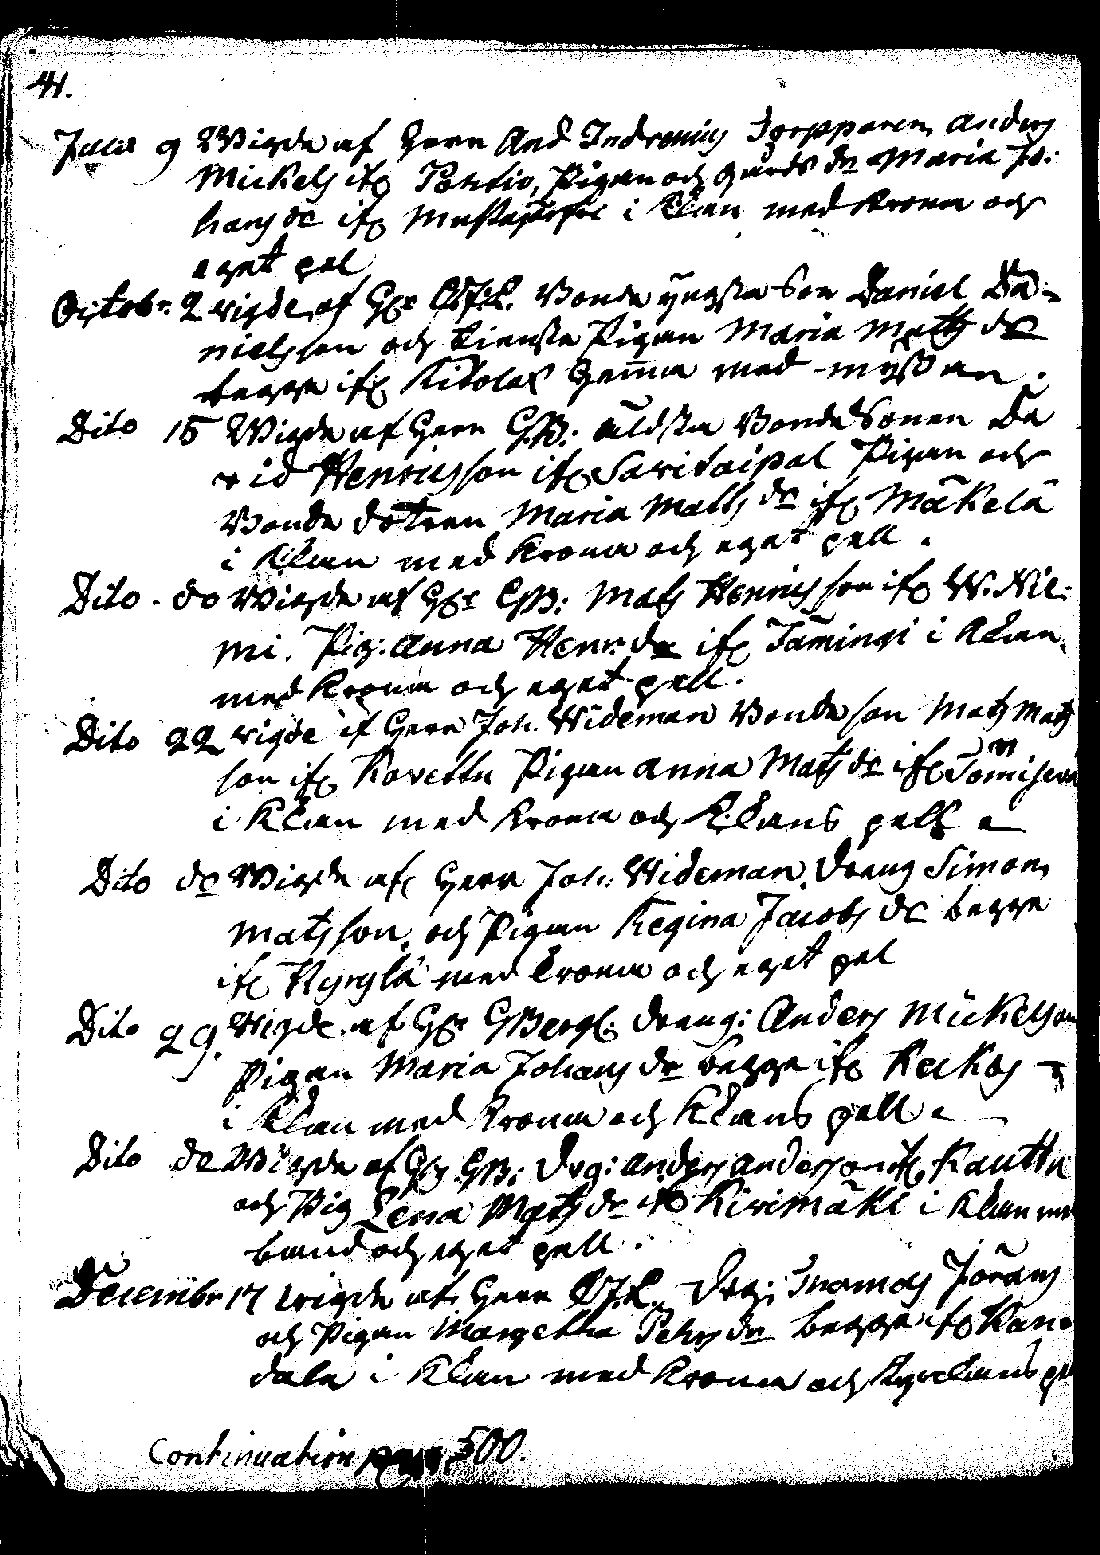 41.
9 Wigde af Herr And Indrenius anders
Mickelss ifr Pontio, Pigan och gårds dr Maria Jo:
hanss dr ifr i Kkan med Krona och
eget pel
Octobr 2 wigde af Hr Bonde yngsta Son Daniel Da-
nielsson och tiensta Pigan Maria Matts dr
begge ifr Kitola hemma med myssan.
Dito 15 Wigde af Herr G.B: äldsta Bonde Sonen Da
vid Henricsson ifr Savitaipal Pigan och
Bonde dotren Maria Matts dr ifr Mäkelä
i Kkan med Krona och eget pell.
Dito - do Wigde af Hr G.B: Mats Henrics son ifr W. Nie:
mi. Pig: Anna Henr: dr ifr Tämingi i Kkan
med Krona och eget pell.
Dito 22 wigde af Herr Joh. Wideman Bonde son Mats Mats
son ifr Kovettu Pigan Anna Mats dr ifr
i Kkan med Krona och Kkans pell
Dito do Wigde af Herr Joh: Wideman, Dreng Simon
Matsson, och Pigan Regina Jacobs dr begge
ifr Hyrylä med Krona och eget pel
Dito 29. Wigde af Hr GBergh. dreng: Anders Mickelson
Pigan Maria Johans dr begge ifr
i Kkan med Krona och Kkans pell
Dito do Wigde af Hr GB: Drg: Anders Andersson ifr Kauttu
och Pig Lena Mats dr ifr Kivimäki i Kkan med
band och eget pell.
Decembr 17 wigde af Herr Drg: Thomas Jörans
och Pigan Margetha Pehrs dr begge ifr Kan-
dala i Kkan med Krona och Kyrckans
Continuation pag 500.